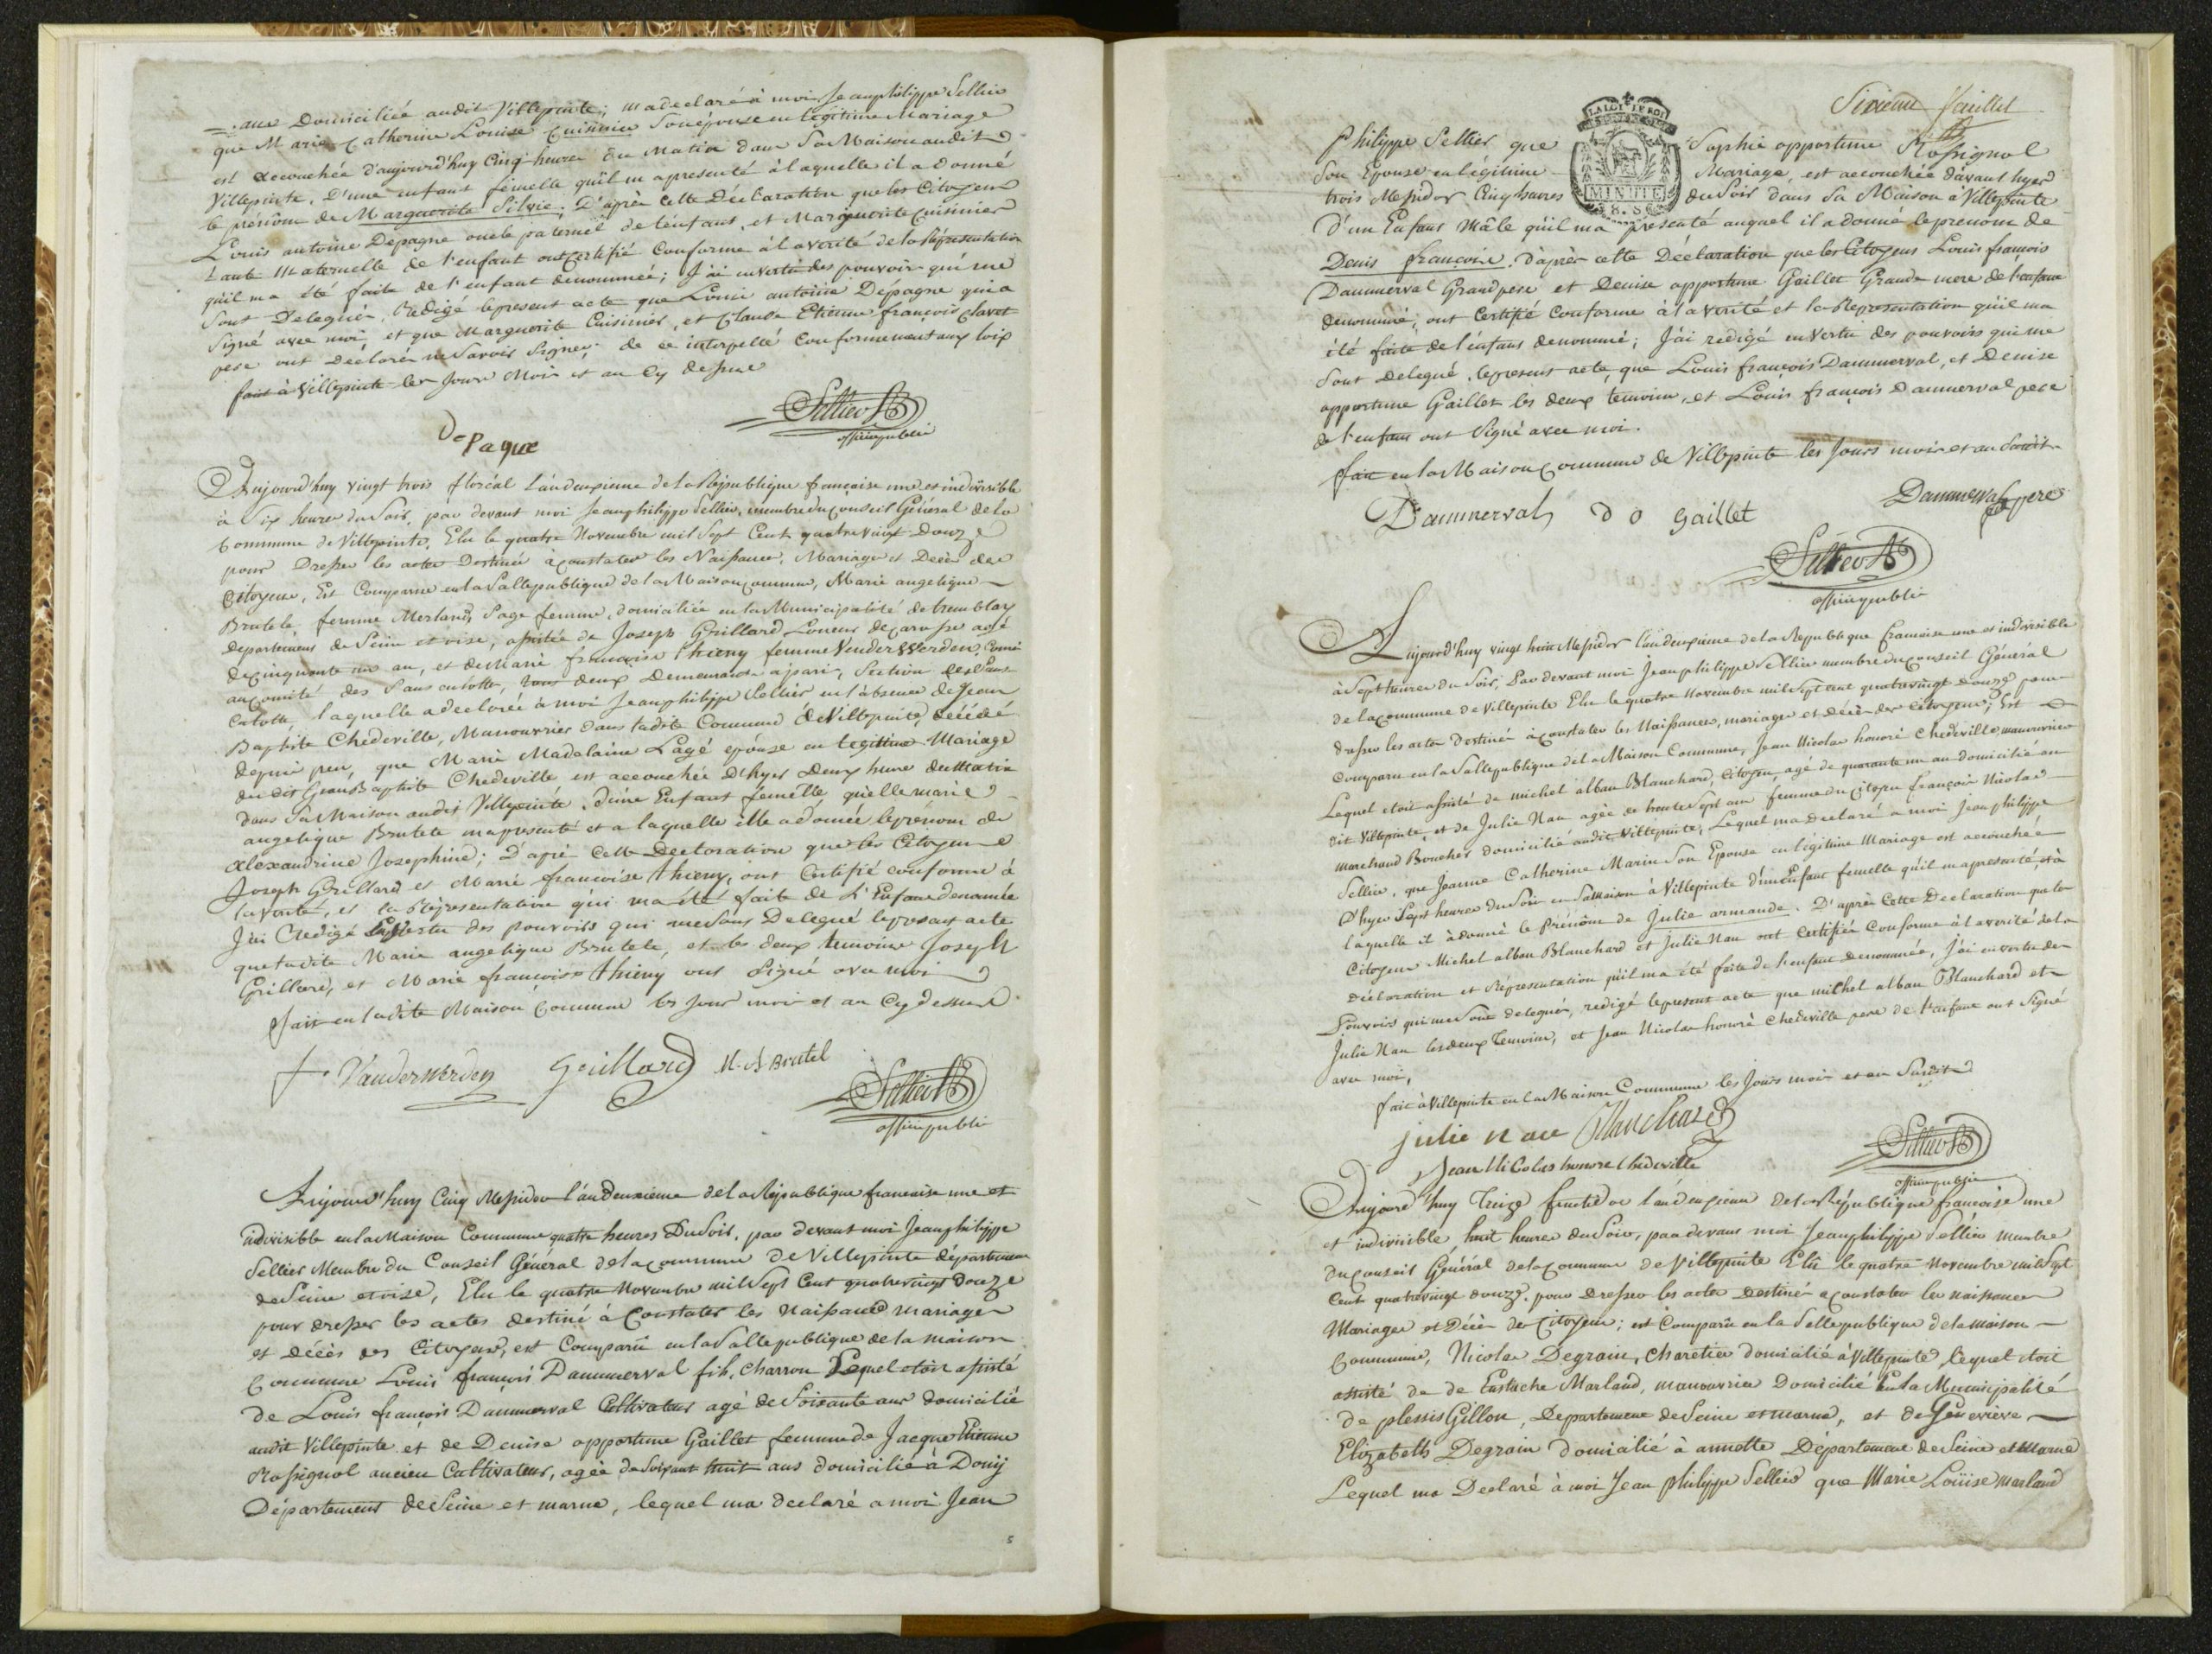 ans Domiciliée audit Villepinte; ma declaré à moi Jeanphilippe Sellier
que Marie Catherine Louise Cuisinier Son épouse en légitime Mariage
est accouchée d'aujourd'huy Cinq heures du Matin dans Sa Maison audit
Villepinte, D'une enfant femelle qu'il m'a presenté à laquelle il a donné
le prénom de Marguerite Silvie; D'après Cette Déclaration que les Citoyens
Louis antoine Depagne oncle paternel de l'enfant, et Marguerite Cuisinier
tante Maternelle de l'enfant ont Certifié Conforme à la verité de la Répresentation
qu'il m'a été faite de l'enfant denommée; J'ai en vertu des pouvoirs qui me
Sont Delegués, Redigé le present acte que Louis antoine Depagne qui a
Signé avec moi, et que Marguerite Cuisinier, et Claude Etienne françois Clavet
pere ont déclarés ne Savoir Signer, de ce interpellé Conformement aux loix
fait à Villepinte les Jours Mois et an Cy dessus
Sellier
officier public
De Paque
Aujourd'huy vingt trois floréal L'an deuxieme de la République française une et indivisible
à Six heures du Soir, par devant moi Jeanphilippe Sellier, membre du conseil Général de la
Commune de Villepinte, Elu le quatre Novembre mil Sept Cent quatre vingt Douze
pour Dresser les actes Destinés à constater les Naissances, Mariages et Décès des
Citoyens, Est Comparue en la Salle publique de la Maison commune, Marie angelique
Brutele, femme Merland, Sage femme, domiciliée en la Municipalité de tremblay
departement de Seine et oise, assistée de Joseph Grillard Loueur de carosse agé
de cinquante un an, et de Marie françoise thieny femme Vanderwerden, Comis
au comité des Sans culotte, tous deux Demeurants a paris, Section des Sans
Culotte, laquelle a declarée à moi Jeanphilippe Sellier en l'absence de Jean
Baptiste Chedeville, Manouvrier dans ladite Commune de Villepinte, décédé
depuis peu, que Marie Madelaine Lagé épouse en legittime Mariage
du dit Jean Baptiste Chedeville est accouchée d'hyer Deux heures du Matin
dans Sa Maison audit Villepinte, d'une Enfant femelle qu'elle marie
angelique Brutele m'a presenté et a laquelle elle a donnée le prénom de
Alexandrine Josephine; D'après Cette Declaration que les Citoyens
Joseph Grillard et Marie françoise thieny, ont Certifié conforme à
la verité, et la Répresentation qui m'a été faite de L'Enfant denomée
J'ai Redigé En vertu des pouvoirs qui me Sont Delegué le present acte
que ladite Marie angelique Brutele, et les deux temoins Joseph
Grillard, et Marie françoise thieny ont Signé avec moi
fait en ladite Maison Commune les Jour mois et an Cy dessus
f. Vanderwerden Grillard M. A Brutel
Sellier
officier public
Aujourd'huy Cinq Messidor l'an deuxieme de la République française une et
indivisible en la Maison Commune quatre heures Du Soir, par devant moi Jeanphilippe
Sellier Membre du Conseil Général de la commune de Villepinte département
de Seine et oise, Elu le quatre Novembre mil Sept Cent quatre vingt douze
pour dresser les actes destiné à Constater les Naissance mariages
et décès des Citoyens, est Comparû en la Salle publique de la maison
Commune Louis françois Dammerval fils, Charron Lequel etoit assisté
de Louis françois Dammerval Cultivateur agé de Soixante ans domicilié
audit Villepinte et de Denise opportune Gaillet femme de Jacque Etienne
Rossignol ancien Cultivateur, agée de Soixant huit ans domiciliée à Douy
Département de Seine et marne, lequel ma declaré a moi Jean
5
Sixieme feuillet
LA LOI LE ROI
MINUTE
8. S.
Philippe Sellier, que Sophie opportune Rossignol
Son Epouse en légitime Mariage, est accouchée d'avant hyer
trois Messidor Cinq heures du Soir dans Sa Maison à Villepinte
D'un Enfant Mâle qu'il ma présenté auquel il a donné le prenom de
Denis françois, d'après cette Déclaration que les Citoyens Louis françois
Dammerval Grand pere et Denise opportune Gaillet Grande mere de l'enfant
denommé, ont Certifié Conforme à la Verité et la Representation qu'il ma
été faite de l'enfant denommé; J'ai redigé en Vertu des pouvoirs qui me
Sont Delegué, le present acte, que Louis françois Dammerval, et Denise
opportune Gaillet les deux temoins, et Louis françois Dammerval pere
de l'enfant ont Signé avec moi.
fait en la Maison Commune de Villepinte les Jours mois et an Susdit
Dammerval D O Gaillet Dammerval pere
Sellier
officier public
Aujourd'huy vingt huit Messidor l'an deuxieme de la Republique francaise une et indivisible
à Sept heures du Soir, Par devant moi Jeanphilippe Sellier membre du conseil Général
de la Commune de Villepinte Elu le quatre Novembre mil Sept cent quatre vingt douze pour
dresser les actes Destiné à constater les Naissances, mariages et décès des Citoyens; Est
Comparu en la Salle publique de la Maison Commune, Jean Nicolas honoré Chedeville manouvrier
Lequel etoit assisté de michel alban Blanchard, Citoyen agé de quarante un an domicilié au
dit Villepinte, et de Julie Nau agée de trente Sept ans femme du Citoyen françois Nicolas
marchand Boucher domicilié audit Villepinte, Lequel ma declaré a moi Jean philippe
Sellier, que Jeanne Catherine Marin Son Epouse en légitime Mariage est accouchée
d'hyer Sept heures du Soir en Sa Maison à Villepinte d'un Enfant femelle qu'il m'a presenté, et à
laquelle il à donné le Prénom de Julie armande. D'après Cette Declaration que les
Citoyens Michel alban Blanchard et Julie Nau ont Certifiée Conforme à la verité de la
Déclaration et Répresentation qu'il ma été faite de l'enfant denommée, J'ai en vertu des
Pouvoirs qui me Sont delegués, redigé le present acte que michel alban Blanchard et
Julie Nau les deux Temoins, et Jean Nicolas honoré Chedeville pere de l'enfant ont Signé
avec moi,
fait à Villepinte en la Maison Commune les Jours mois et an Susdit
julie nau Blanchard
Jean Nicolas honore Chedeville
Sellier
officier public
Aujourd'huy Treize fructidor l'an deuxieme de la République françoise une
et indivisible huit heures du Soir, par devant moi Jeanphilippe Sellier membre
du conseil Général de la Commune de Villepinte Elû le quatre Novembre mil Sept
Cent quatrevingt douze, pour dresser les actes destinés a constater les naissances
Mariages et Décès des Citoyens; est Comparû en la Salle publique de la maison
Commune, Nicolas Degrain, Charetier domicilié à Villepinte, lequel etoit
assisté de de Eustache Marland, manouvrier Domicilié En la Municipalité
de plessis Gillon, Departement de Seine et marne, et de Genevieve
Elizabeth Degrain domicilié à annette Département de Seine et Marne
Lequel ma Déclaré à moi Jean philippe Sellier que Marie Loüise Marland